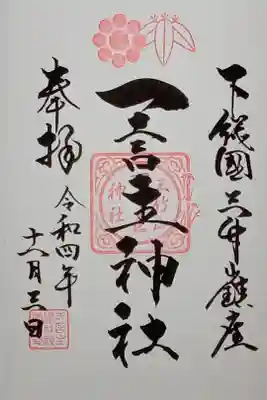 下総國三竹山鎮座
一言主神社
奉拝
令和四年
十一月三日